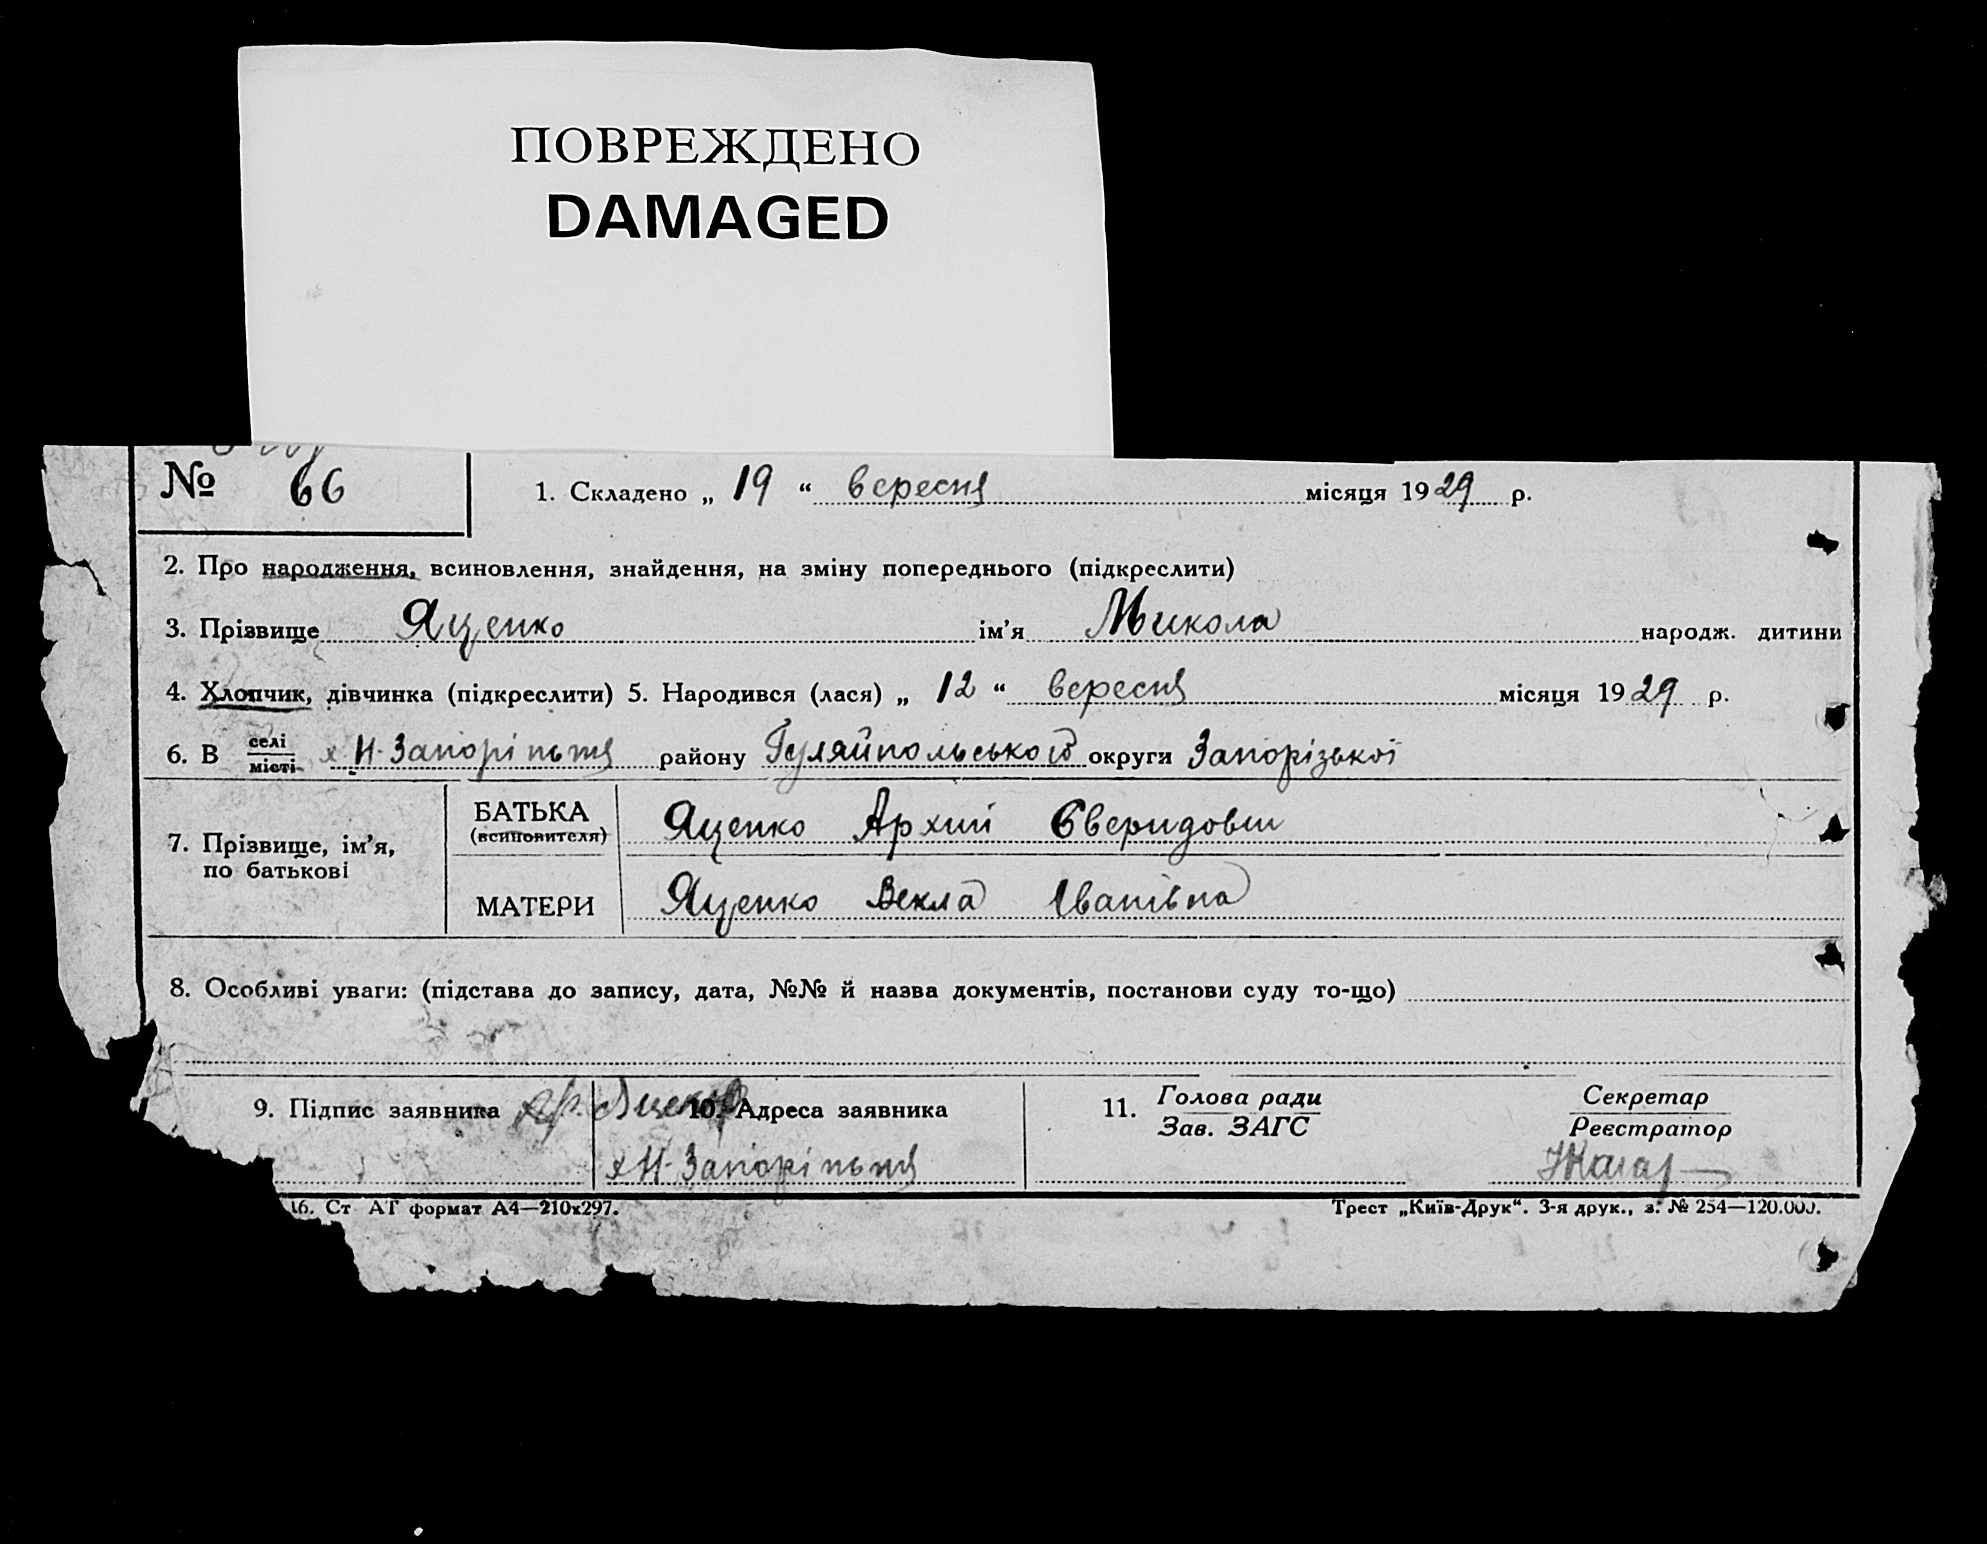 ПОВРЕЖДЕНО
DAMAGED
№ 66
1. Складено „ 19 “ вересня місяця 1929 р.
2. Про народження, всиновлення, знайдення, на зміну попереднього (підкреслити)
3. Прізвище Яценко ім’я Микола народж. дитини
4. Хлопчик, дівчинка (підкреслити) 5. Народився (лася) „ 12 “ вересня місяця 1929 р.
6. В селі місті х Н-Запоріжжя району Гуляйпольської округи Запорізької
7. Прізвище, ім’я, по батькові
БАТЬКА (всиновителя) Яценко Архип
МАТЕРИ Яценко Векла Іванівна
8. Особливі уваги: (підстава до запису, дата, №№ й назва документів, постанови суду то-що)
9. Підпис заявника Яценко
10. Адреса заявника
х Н-Запоріжжя
11. Голова ради
Зав. ЗАГС
Секретар
Реєстратор
16. Ст АТ формат А4—210х297.
Трест „Київ-Друк“. 3-я друк., з. № 254—120.000.